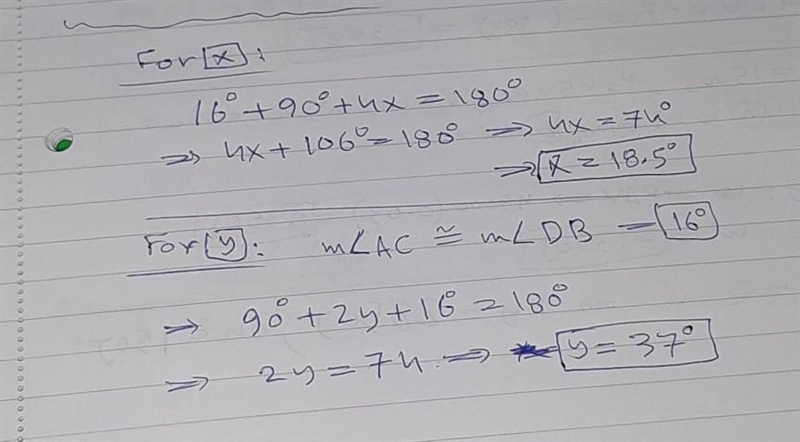 For [x]:
16° + 90° + 4x = 180°
⇒ 4x + 106° = 180° ⇒ 4x = 74°
⇒ x = 18.5°
For [y]: m∠AC ≅ m∠DB — 16°
⇒ 90° + 2y + 16° = 180°
⇒ 2y = 74 ⇒ y = 37°